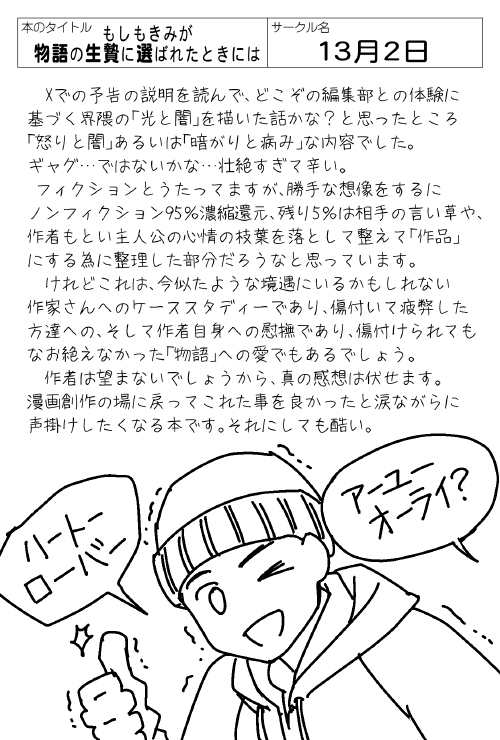 本のタイトル
もしもきみが
物語の生贄に選ばれたときには
サークル名
13月2日
Xでの予告の説明を読んで、どこぞの編集部との体験に
基づく界隈の「光と闇」を描いた話かな?と思ったところ
「怒りと闇」あるいは「暗がりと病み」な内容でした。
ギャグ…ではないかな…壮絶すぎて辛い。
フィクションとうたってますが、勝手な想像をするに
ノンフィクション95%濃縮還元、残り5%は相手の言い草や、
作者もとい主人公の心情の枝葉を落として整えて「作品」
にする為に整理した部分だろうなと思っています。
けれどこれは、今似たような境遇にいるかもしれない
作家さんへのケーススタディーであり、傷付いて疲弊した
方達への、そして作者自身への慰撫であり、傷付けられても
なお絶えなかった「物語」への愛でもあるでしょう。
作者は望まないでしょうから、真の感想は伏せます。
漫画創作の場に戻ってこれた事を良かったと涙ながらに
声掛けしたくなる本です。それにしても酷い。
アーユー
オーライ?
ハートー
ローバー